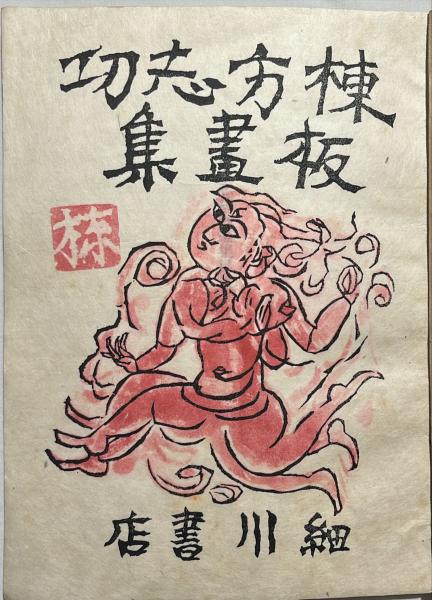 棟方志功
板畫集
棟
細川書店